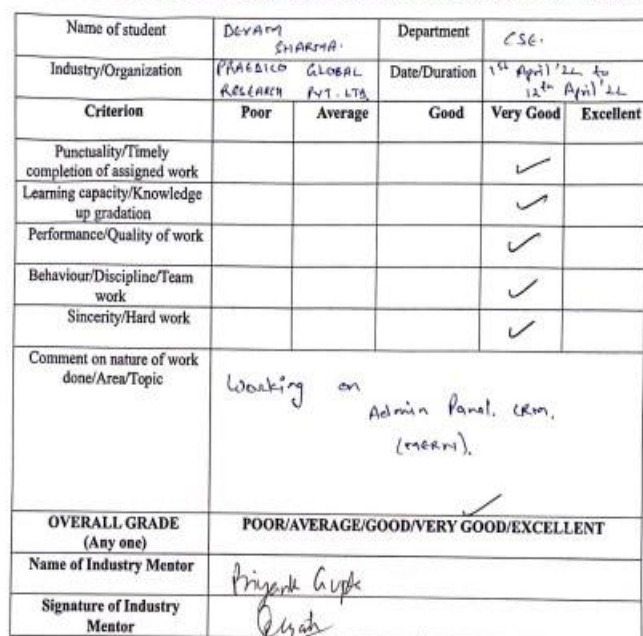 Name of student DEVAM SHARMA. Department CSE.
Industry/Organization PRAEDICO GLOBAL RESEARCH PVT. LTD. Date/Duration 1st April'22 to 12th April'22
Criterion Poor Average Good Very Good Excellent
Punctuality/Timely completion of assigned work ✓
Learning capacity/Knowledge up gradation ✓
Performance/Quality of work ✓
Behaviour/Discipline/Team work ✓
Sincerity/Hard work ✓
Comment on nature of work
done/Area/Topic
Working on
Admin Panel. CRM.
(MERN).
OVERALL GRADE
(Any one)
POOR/AVERAGE/GOOD/VERY GOOD/EXCELLENT
Name of Industry Mentor Priyank Gupta
Signature of Industry
Mentor